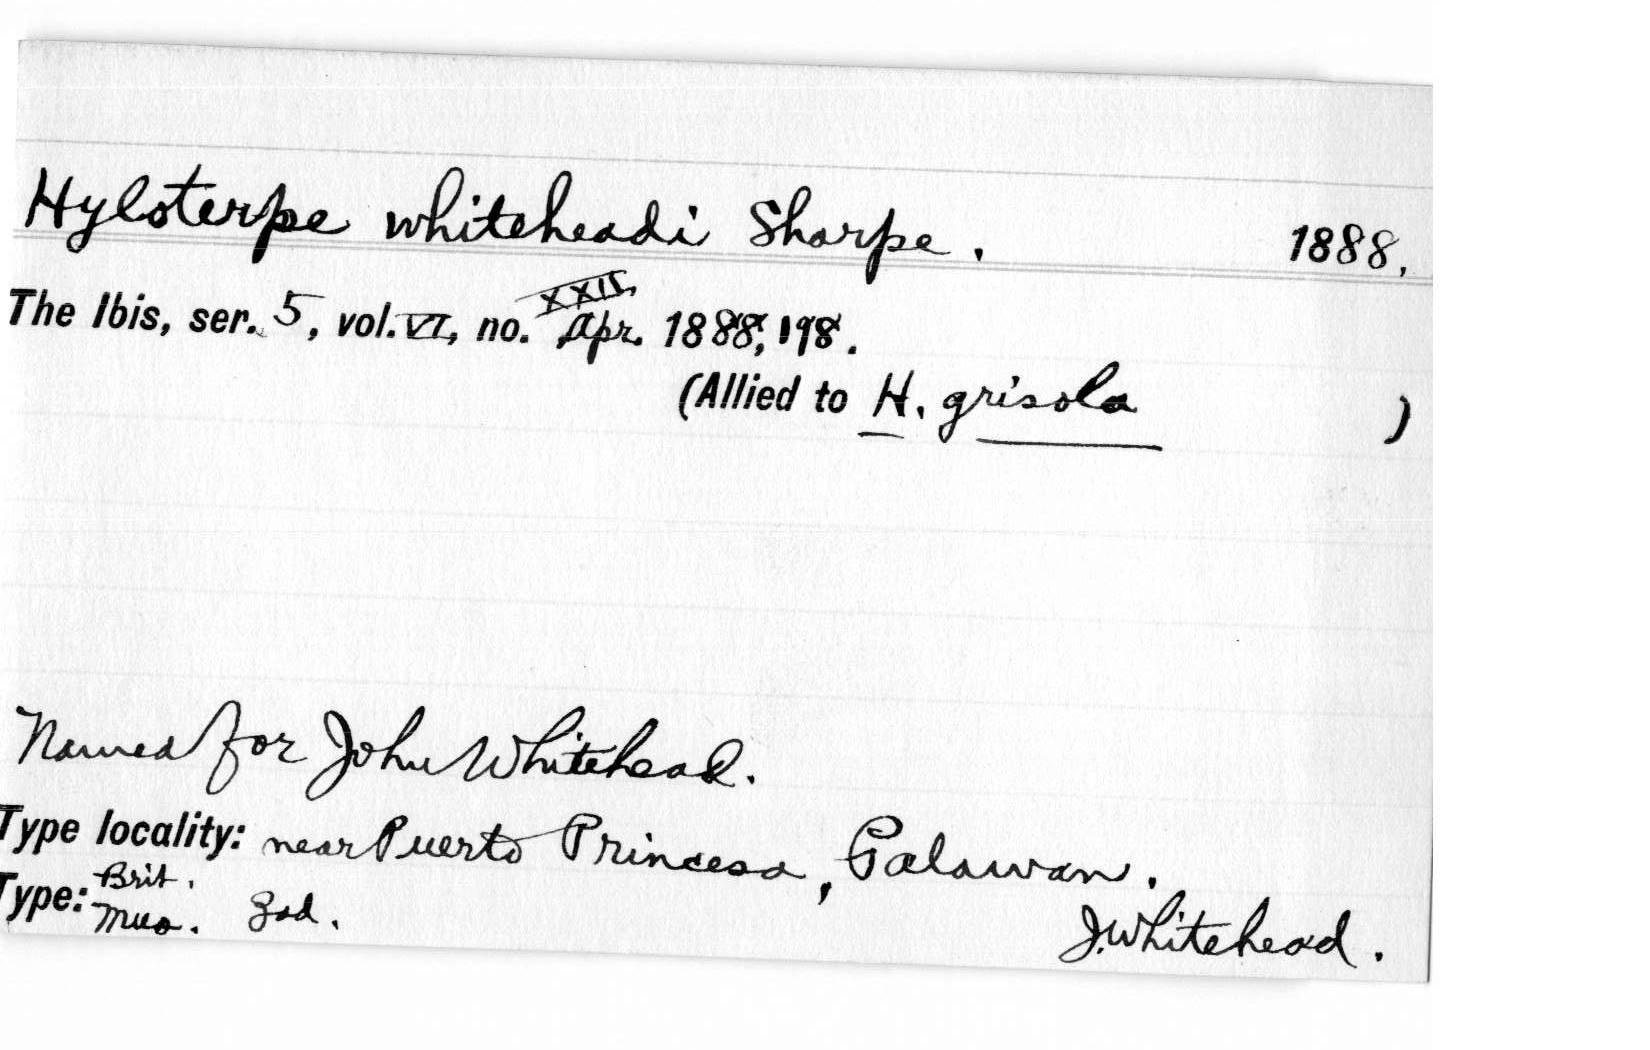 Hyloterpe whiteheadi Sharpe. 1888.
The Ibis, ser. 5, vol. VI, no. XXII, Apr. 1888, 198.
(Allied to H. grisola )
Named for John Whitehead.
Type locality: near Puerto Princesa, Palawan.
Type: Brit. Mus. J. Whitehead.